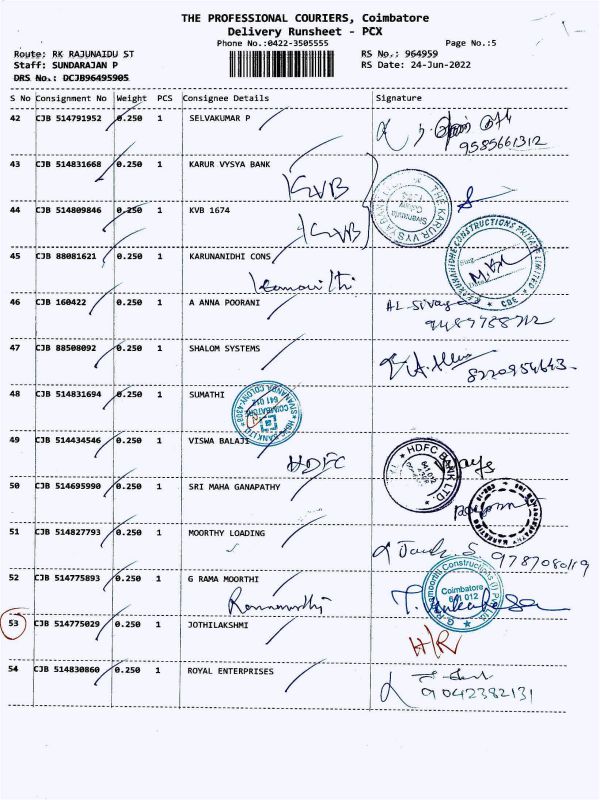 THE PROFESSIONAL COURIERS, Coimbatore
Delivery Runsheet - PCX
Phone No.:0422-3505555
Page No.:5
Route: RK RAJUNAIDU ST
RS No.: 964959
Staff: SUNDARAJAN P
RS Date: 24-Jun-2022
DRS No.: DCJB96495905
S No Consignment No Weight PCS Consignee Details Signature
42 CJB 514791952 0.250 1 SELVAKUMAR P
9585661312
43 CJB 514831668 0.250 1 KARUR VYSYA BANK
KVB
44 CJB 514809846 0.250 1 KVB 1674
KVB
45 CJB 88081621 0.250 1 KARUNANIDHI CONS
46 CJB 160422 0.250 1 A ANNA POORANI
47 CJB 88508092 0.250 1 SHALOM SYSTEMS
8220954643
48 CJB 514831694 0.250 1 SUMATHI
49 CJB 514434546 0.250 1 VISWA BALAJI
HDFC
HDFC BANK LTD.
50 CJB 514695990 0.250 1 SRI MAHA GANAPATHY
51 CJB 514827793 0.250 1 MOORTHY LOADING
9787080119
52 CJB 514775893 0.250 1 G RAMA MOORTHI
Coimbatore
641 012
53 CJB 514775029 0.250 1 JOTHILAKSHMI
H/R
54 CJB 514830860 0.250 1 ROYAL ENTERPRISES
9042382131